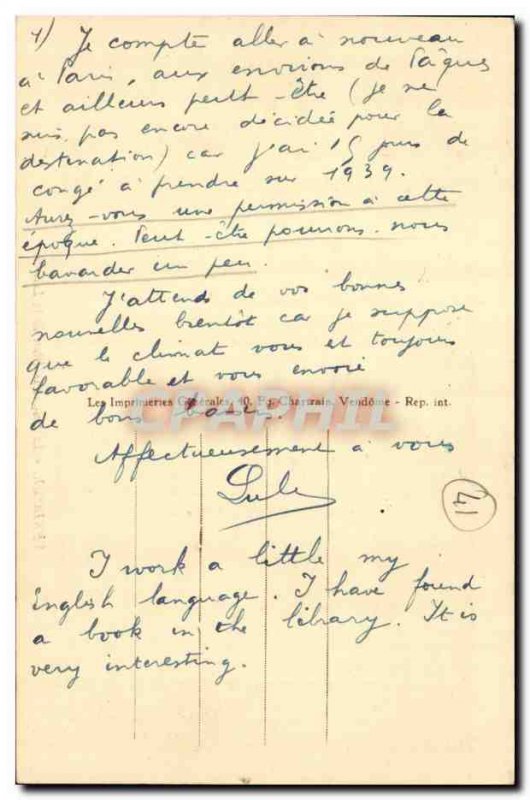 4) Je compte aller à nouveau
à Paris, aux environs de Pâques
et ailleurs peut-être (je ne
suis pas encore décidée pour la
destination) car j'ai 15 jours de
congé à prendre sur 1939.
Aurez-vous une permission à cette
époque. Peut-être pourrons-nous
bavarder un peu.
J'attends de vos bonnes
nouvelles bientôt car je suppose
que le climat vous est toujours
favorable et vous envoie
Les Imprimeries Générales, 10, Fg Chartrain, Vendôme - Rep. int.
CPAPHIL
de bons baisers.
Affectueusement à vous
41
I work a little my
English language. I have found
a book in the library. It is
very interesting.